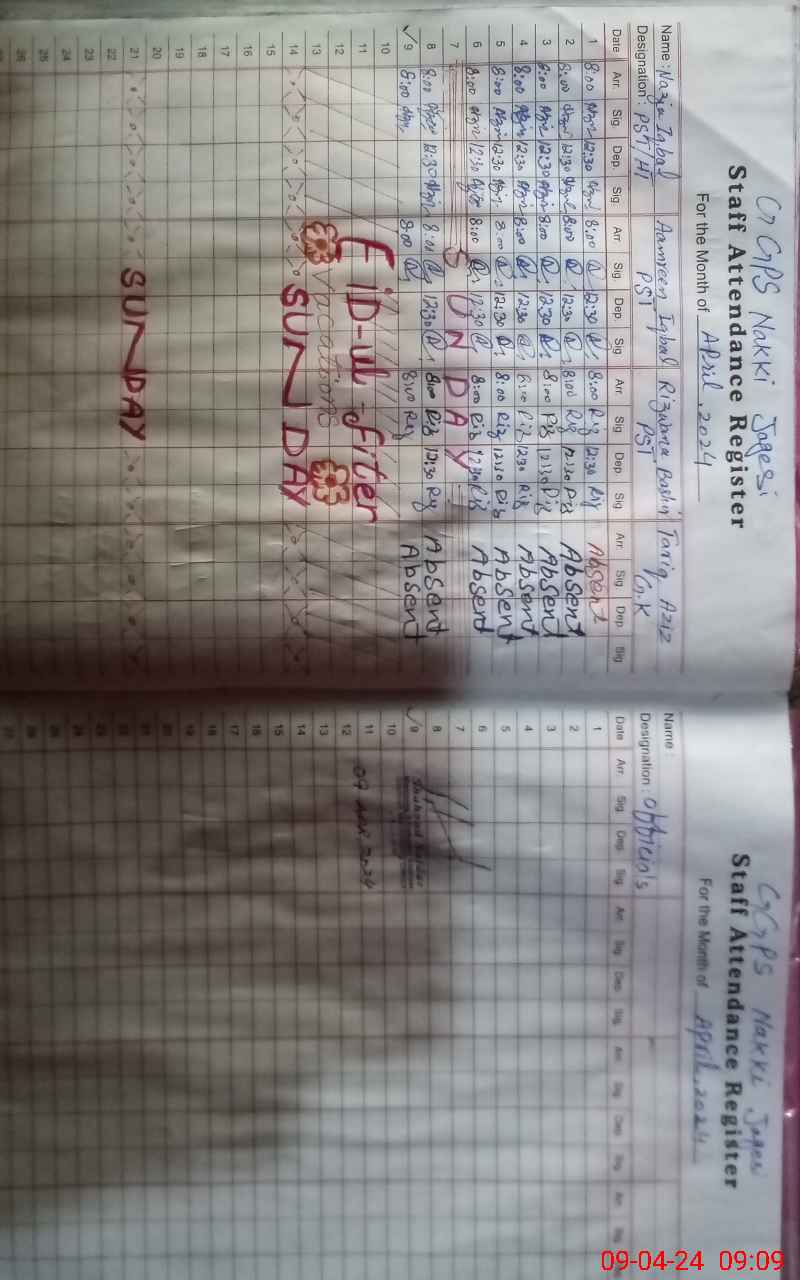 GGPS Nakki Jagesi
Staff Attendance Register
For the Month of April, 2024
Name : Nazia Iqbal Aamreen Iqbal Rizwana Bashir Tariq Aziz
Designation : PST/HT PST PST G.K
Date Arr. Sig. Dep. Sig. Arr. Sig. Dep. Sig. Arr. Sig. Dep. Sig. Arr. Sig. Dep. Sig.
1 8:00 12:30 8:00 12:30 8:00 Riz 12:30 Riz Absent
2 8:00 12:30 8:00 12:30 8:00 Riz 12:30 Riz Absent
3 8:00 12:30 8:00 12:30 8:00 Riz 12:30 Riz Absent
4 8:00 12:30 8:00 12:30 8:00 Riz 12:30 Riz Absent
5 8:00 12:30 8:00 12:30 8:00 Riz 12:30 Riz Absent
6 8:00 12:30 8:00 12:30 8:00 Riz 12:30 Riz Absent
7 SUNDAY
8 8:00 12:30 8:00 12:30 8:00 Riz 12:30 Riz Absent
9 8:00 8:00 8:00 Riz Absent
10
11 EID-ul-fiter
12
13 vacations
14 SUNDAY
15
16
17
18
19
20
21 SUNDAY
22
23
24
25
26
GGPS Nakki Jagesi
Staff Attendance Register
For the Month of April, 2024
Name :
Designation : officin's
Date Arr. Sig. Dep. Sig. Arr. Sig. Dep. Sig. Arr. Sig. Dep. Sig. Arr. Sig.
1
2
3
4
5
6
7
8
9
10
11 09 APR 2024
12
13
14
15
16
17
18
19
20
21
22
23
24
25
26
27
09-04-24 09:09